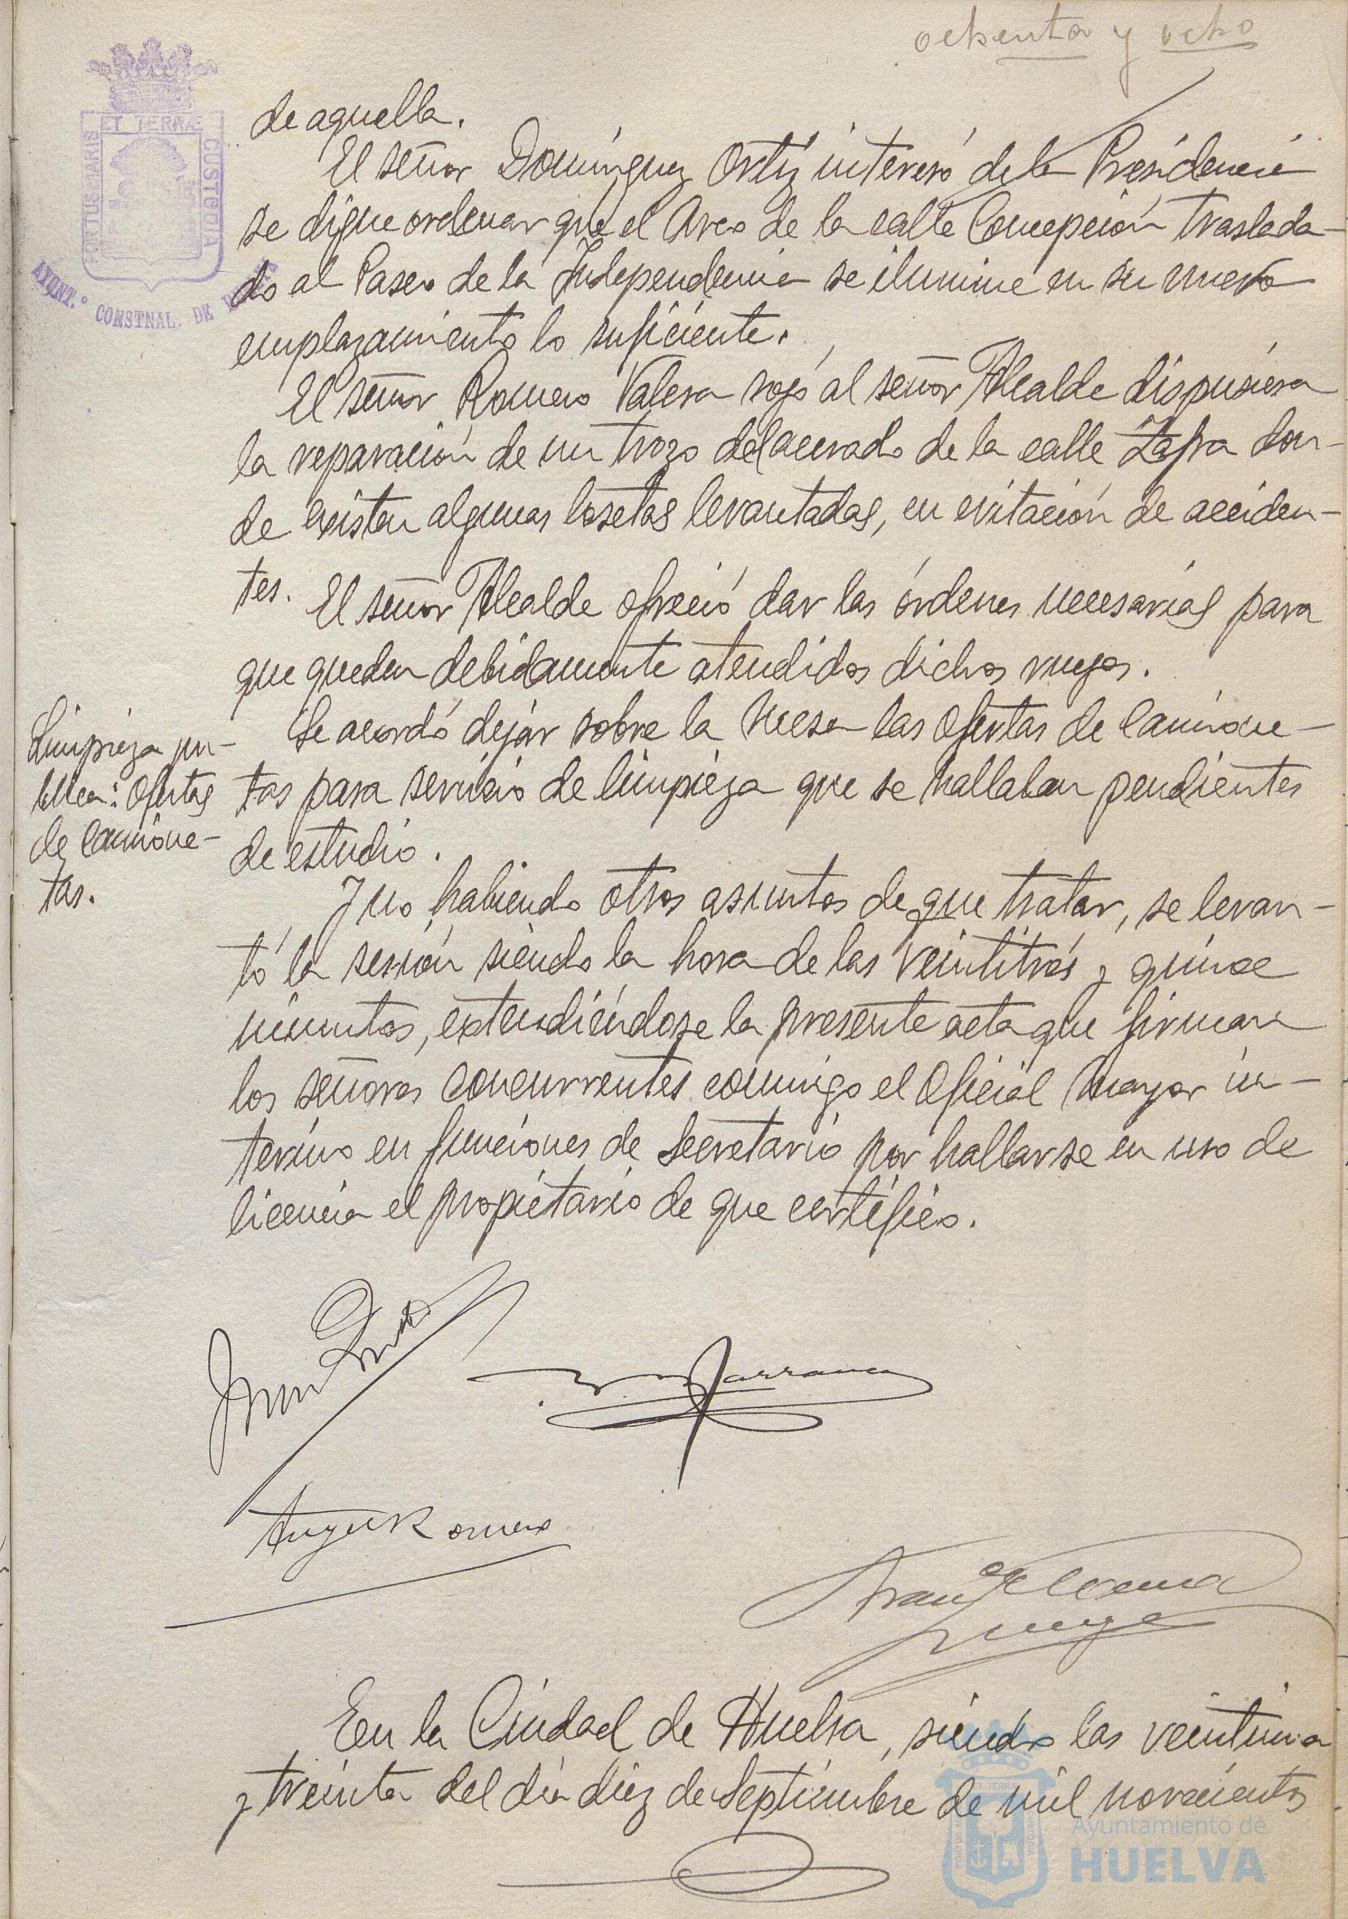 ochenta y ocho
PORTUS MARIS ET TERRÆ CUSTODIA
AYUNT.º CONSTNAL. DE
de aquella.
El señor Domínguez Ortiz interesó de la Presidencia
se digne ordenar que el Arco de la calle Concepción traslada-
do al Paseo de la Independencia se ilumine en su nuevo
emplazamiento lo suficiente.
El señor Romero Valera rogó al señor Alcalde dispusiera
la reparación de un trozo del acerado de la calle Zafra don-
de existen algunas losetas levantadas, en evitación de acciden-
tes. El señor Alcalde ofreció dar las órdenes necesarias para
que queden debidamente atendidos dichos ruegos.
Limpieza pú-
blica: Ofertas
de camione-
tas.
Se acordó dejar sobre la mesa las ofertas de camione-
tas para servicio de limpieza que se hallaban pendientes
de estudio.
Y no habiendo otros asuntos de que tratar, se levan-
tó la sesión siendo la hora de las veintitrés y quince
minutos, extendiéndose la presente acta que firman
los señores concurrentes conmigo el Oficial Mayor in-
terino en funciones de Secretario por hallarse en uso de
licencia el propietario de que certifico.
Romero
En la Ciudad de Huelva, siendo las veintiuna
y treinta del día diez de Septiembre de mil novecientos
Ayuntamiento de
HUELVA